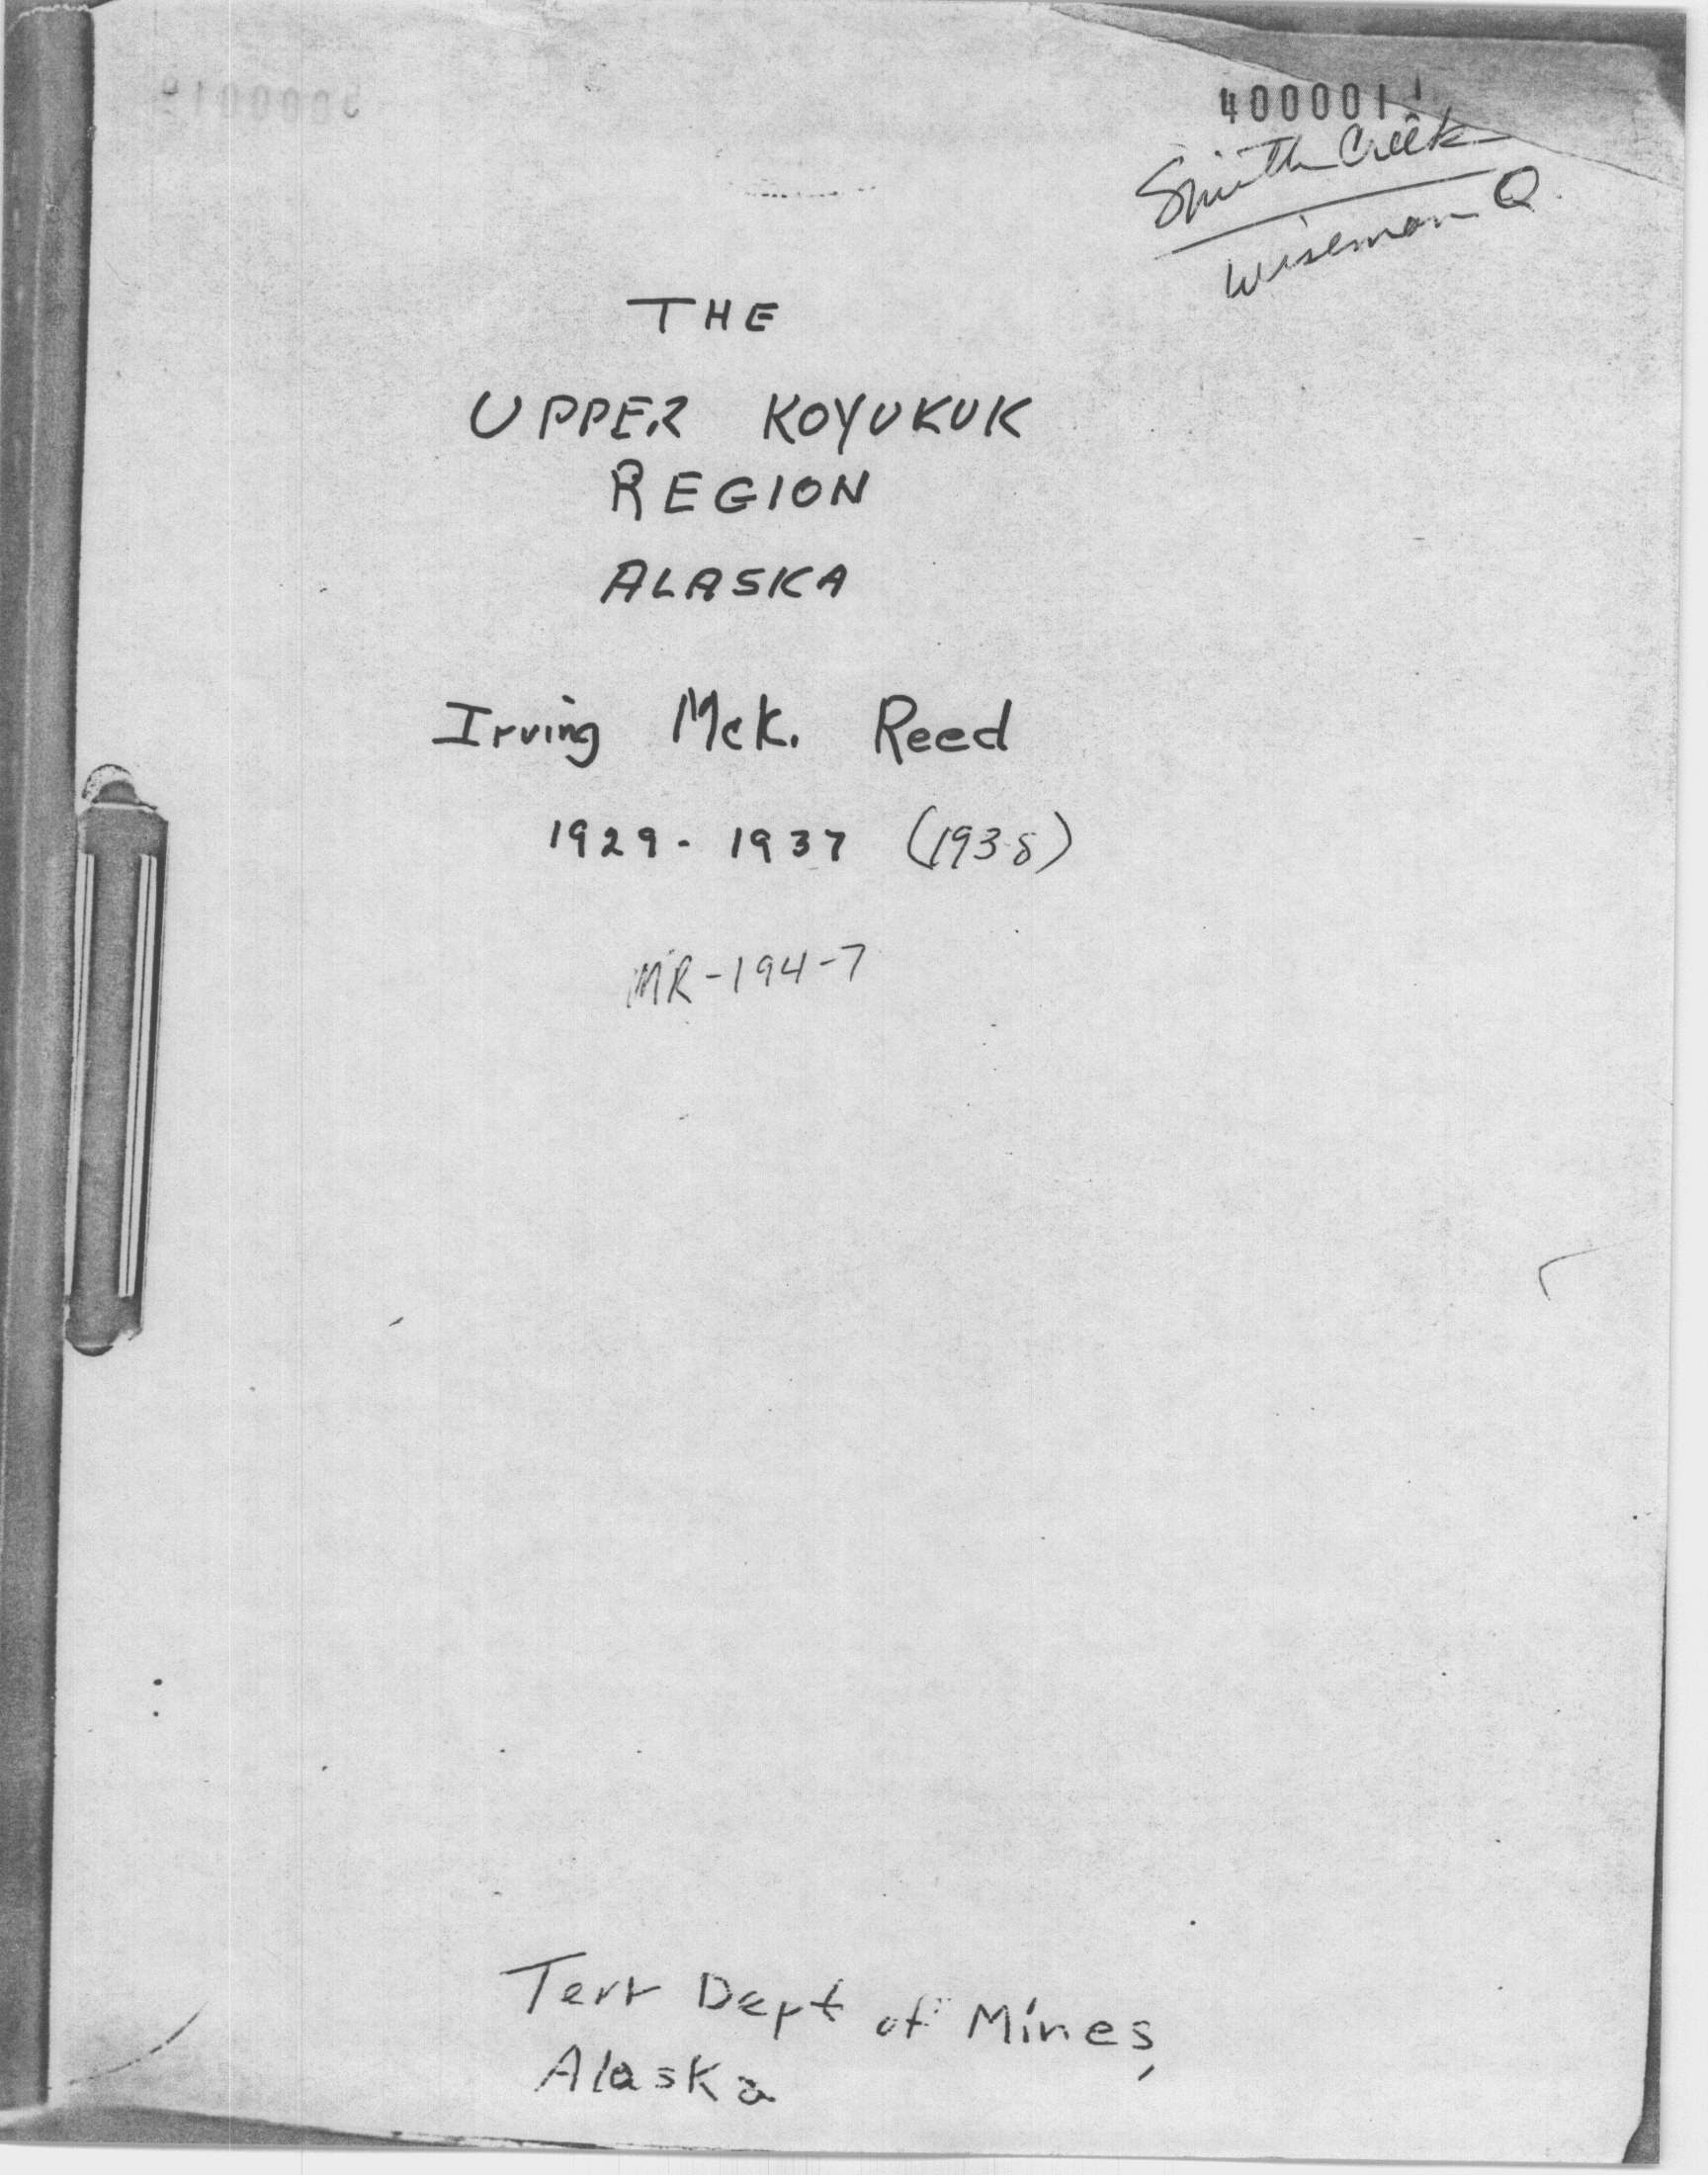 4000011
Smith Creek
Wiseman Q.
THE
UPPER KOYUKUK
REGION
ALASKA
Irving McK. Reed
1929-1937 (1938)
MR-194-7
Terr Dept of Mines,
Alaska